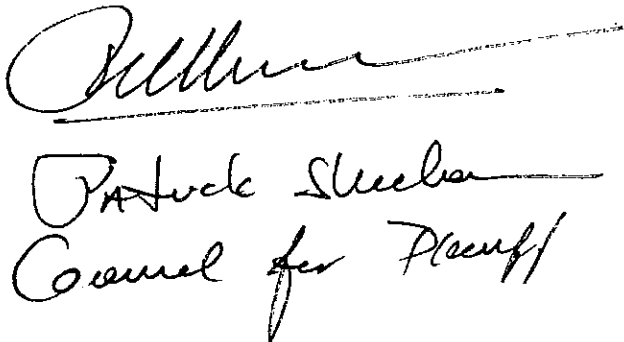 Patrick Sheehan
Counsel for Plaintiff